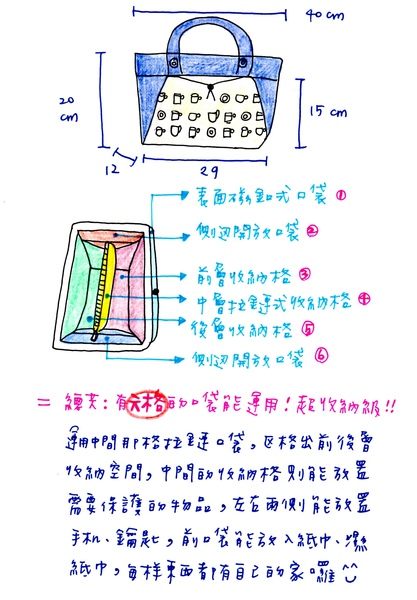 40 cm
20 cm
15 cm
12
29
表面磁釦式口袋 ①
側邊開放口袋 ②
前層收納格 ③
中層拉鏈式收納格 ④
後層收納格 ⑤
側邊開放口袋 ⑥
= 總共:有六格的口袋能運用!超收納級!!
運用中間那格拉鏈口袋,區格出前後層
收納空間,中間的收納格則能放置
需要保護的物品,左右兩側能放置
手机、鑰匙,前口袋能放入紙巾、濕
紙巾,每樣東西都有自己的家囉